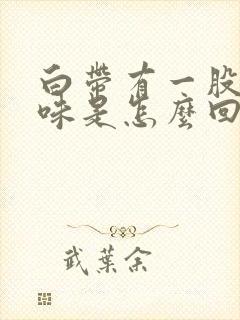 白带有一股
味是怎麼回
武葉余